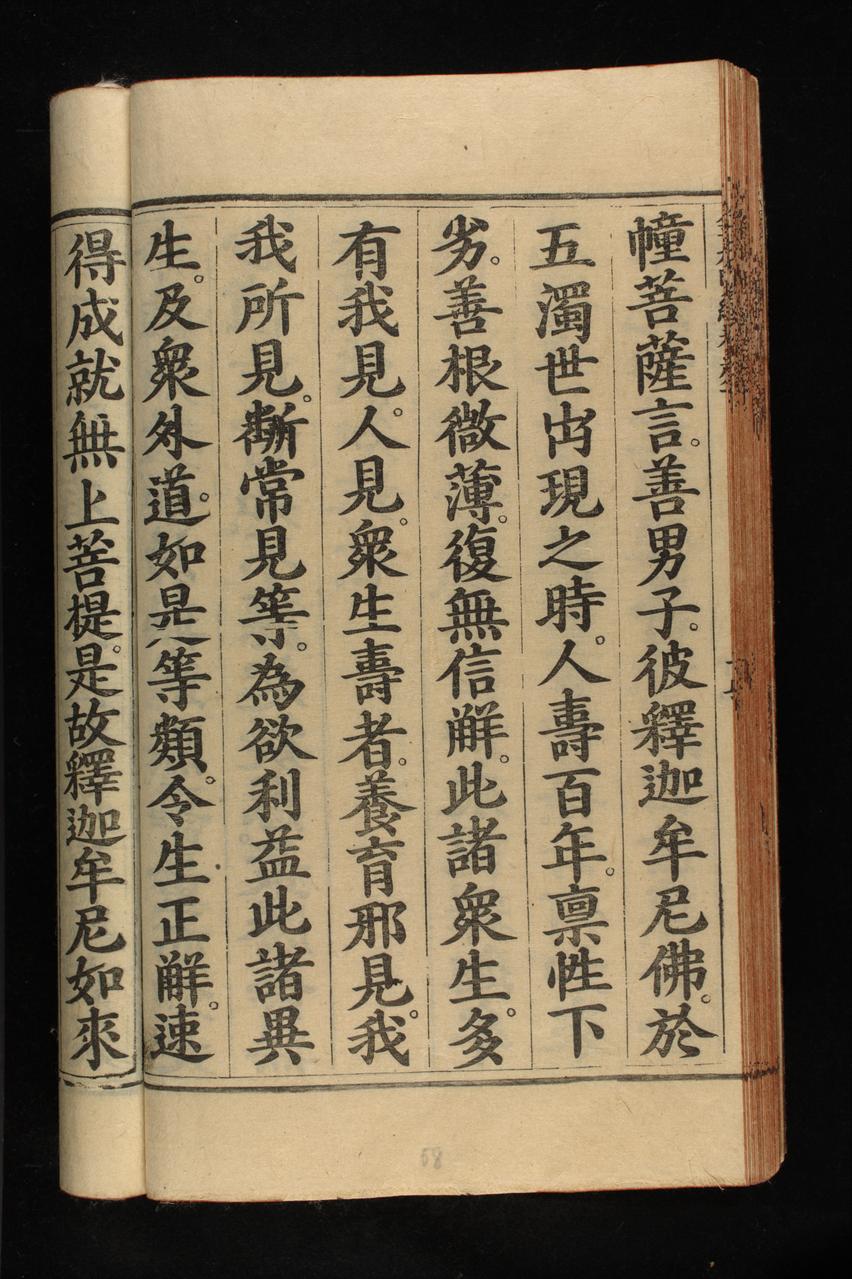 幢菩薩言。善男子。彼釋迦牟尼佛。於
五濁世出現之時。人壽百年。禀性下
劣。善根微薄。復無信解。此諸衆生。多
有我見。人見。衆生壽者。養育邪見。我
我所見。斷常見等。為欲利益此諸異
生。及衆外道。如是等類。令生正解。速
得成就無上菩提。是故釋迦牟尼如來
68